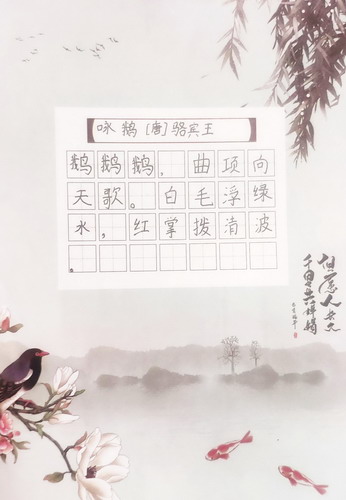 咏鹅[唐]骆宾王
鹅鹅鹅，曲项向
天歌。白毛浮绿
水，红掌拨清波
。
但愿人长久
千里共婵娟